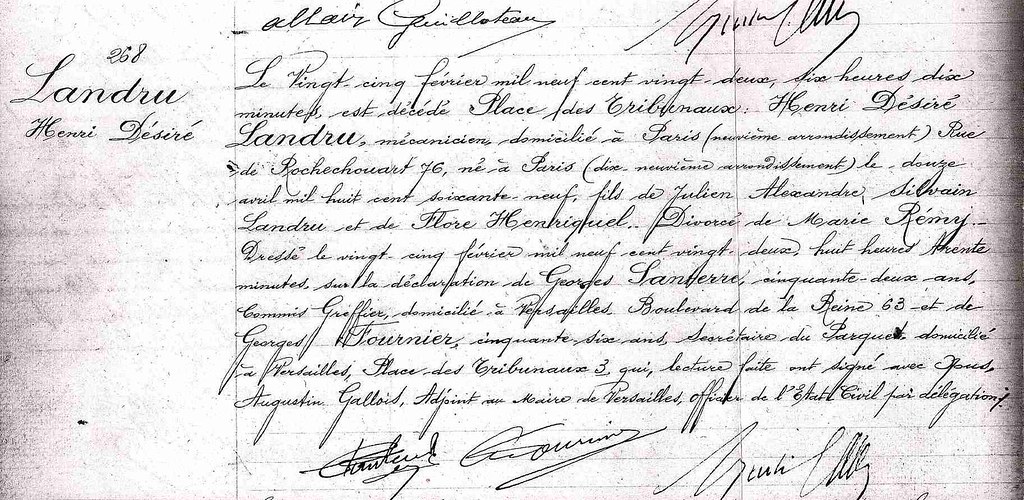 allair Guilloteau
268
Landru
Henri Désiré
Le Vingt-cinq février mil neuf cent vingt-deux, six heures dix
minutes, est décédé Place des Tribunaux: Henri Désiré
Landru, mécanicien, domicilié à Paris (neuvième arrondissement) Rue
de Rochechouart 76, né à Paris (dix-neuvième arrondissement) le douze
avril mil huit cent soixante-neuf, fils de Julien Alexandre, Silvain
Landru et de Flore Henriquel. Divorcé de Marie Rémy.
Dressé le vingt-cinq février mil neuf cent vingt-deux, huit heures trente
minutes, sur la déclaration de Georges Lanterre, cinquante-deux ans,
Commis Greffier, domicilié à Versailles, Boulevard de la Reine 63 et de
Georges Fournier, cinquante six ans, Secrétaire du Parquet, domicilié
à Versailles, Place des Tribunaux 3, qui, lecture faite ont signé avec Nous,
Augustin Gallois, Adjoint au Maire de Versailles, officier de l'Etat Civil par délégation.